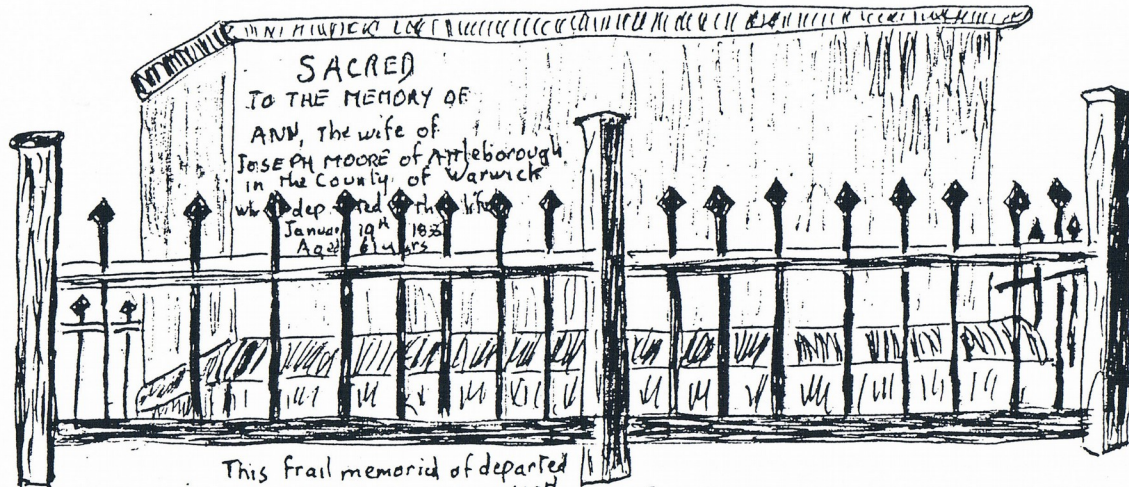 SACRED
TO THE MEMORY OF
ANN, The wife of
JOSEPH MOORE of Attleborough
in the County of Warwick
who departed this life
January 19th
Aged 61 years
This frail memorial of departed